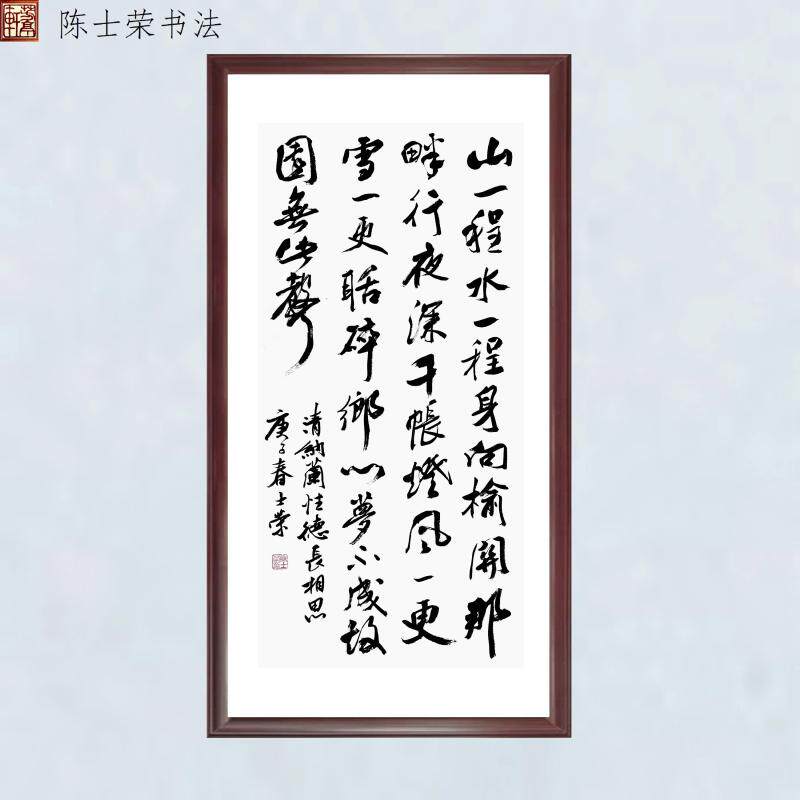 陈士荣书法
山一程水一程身向榆關那
畔行夜深千帳燈風一更
雪一更聒碎鄉心夢不成故
園無此聲
清納蘭性德長相思
庚子春士荣